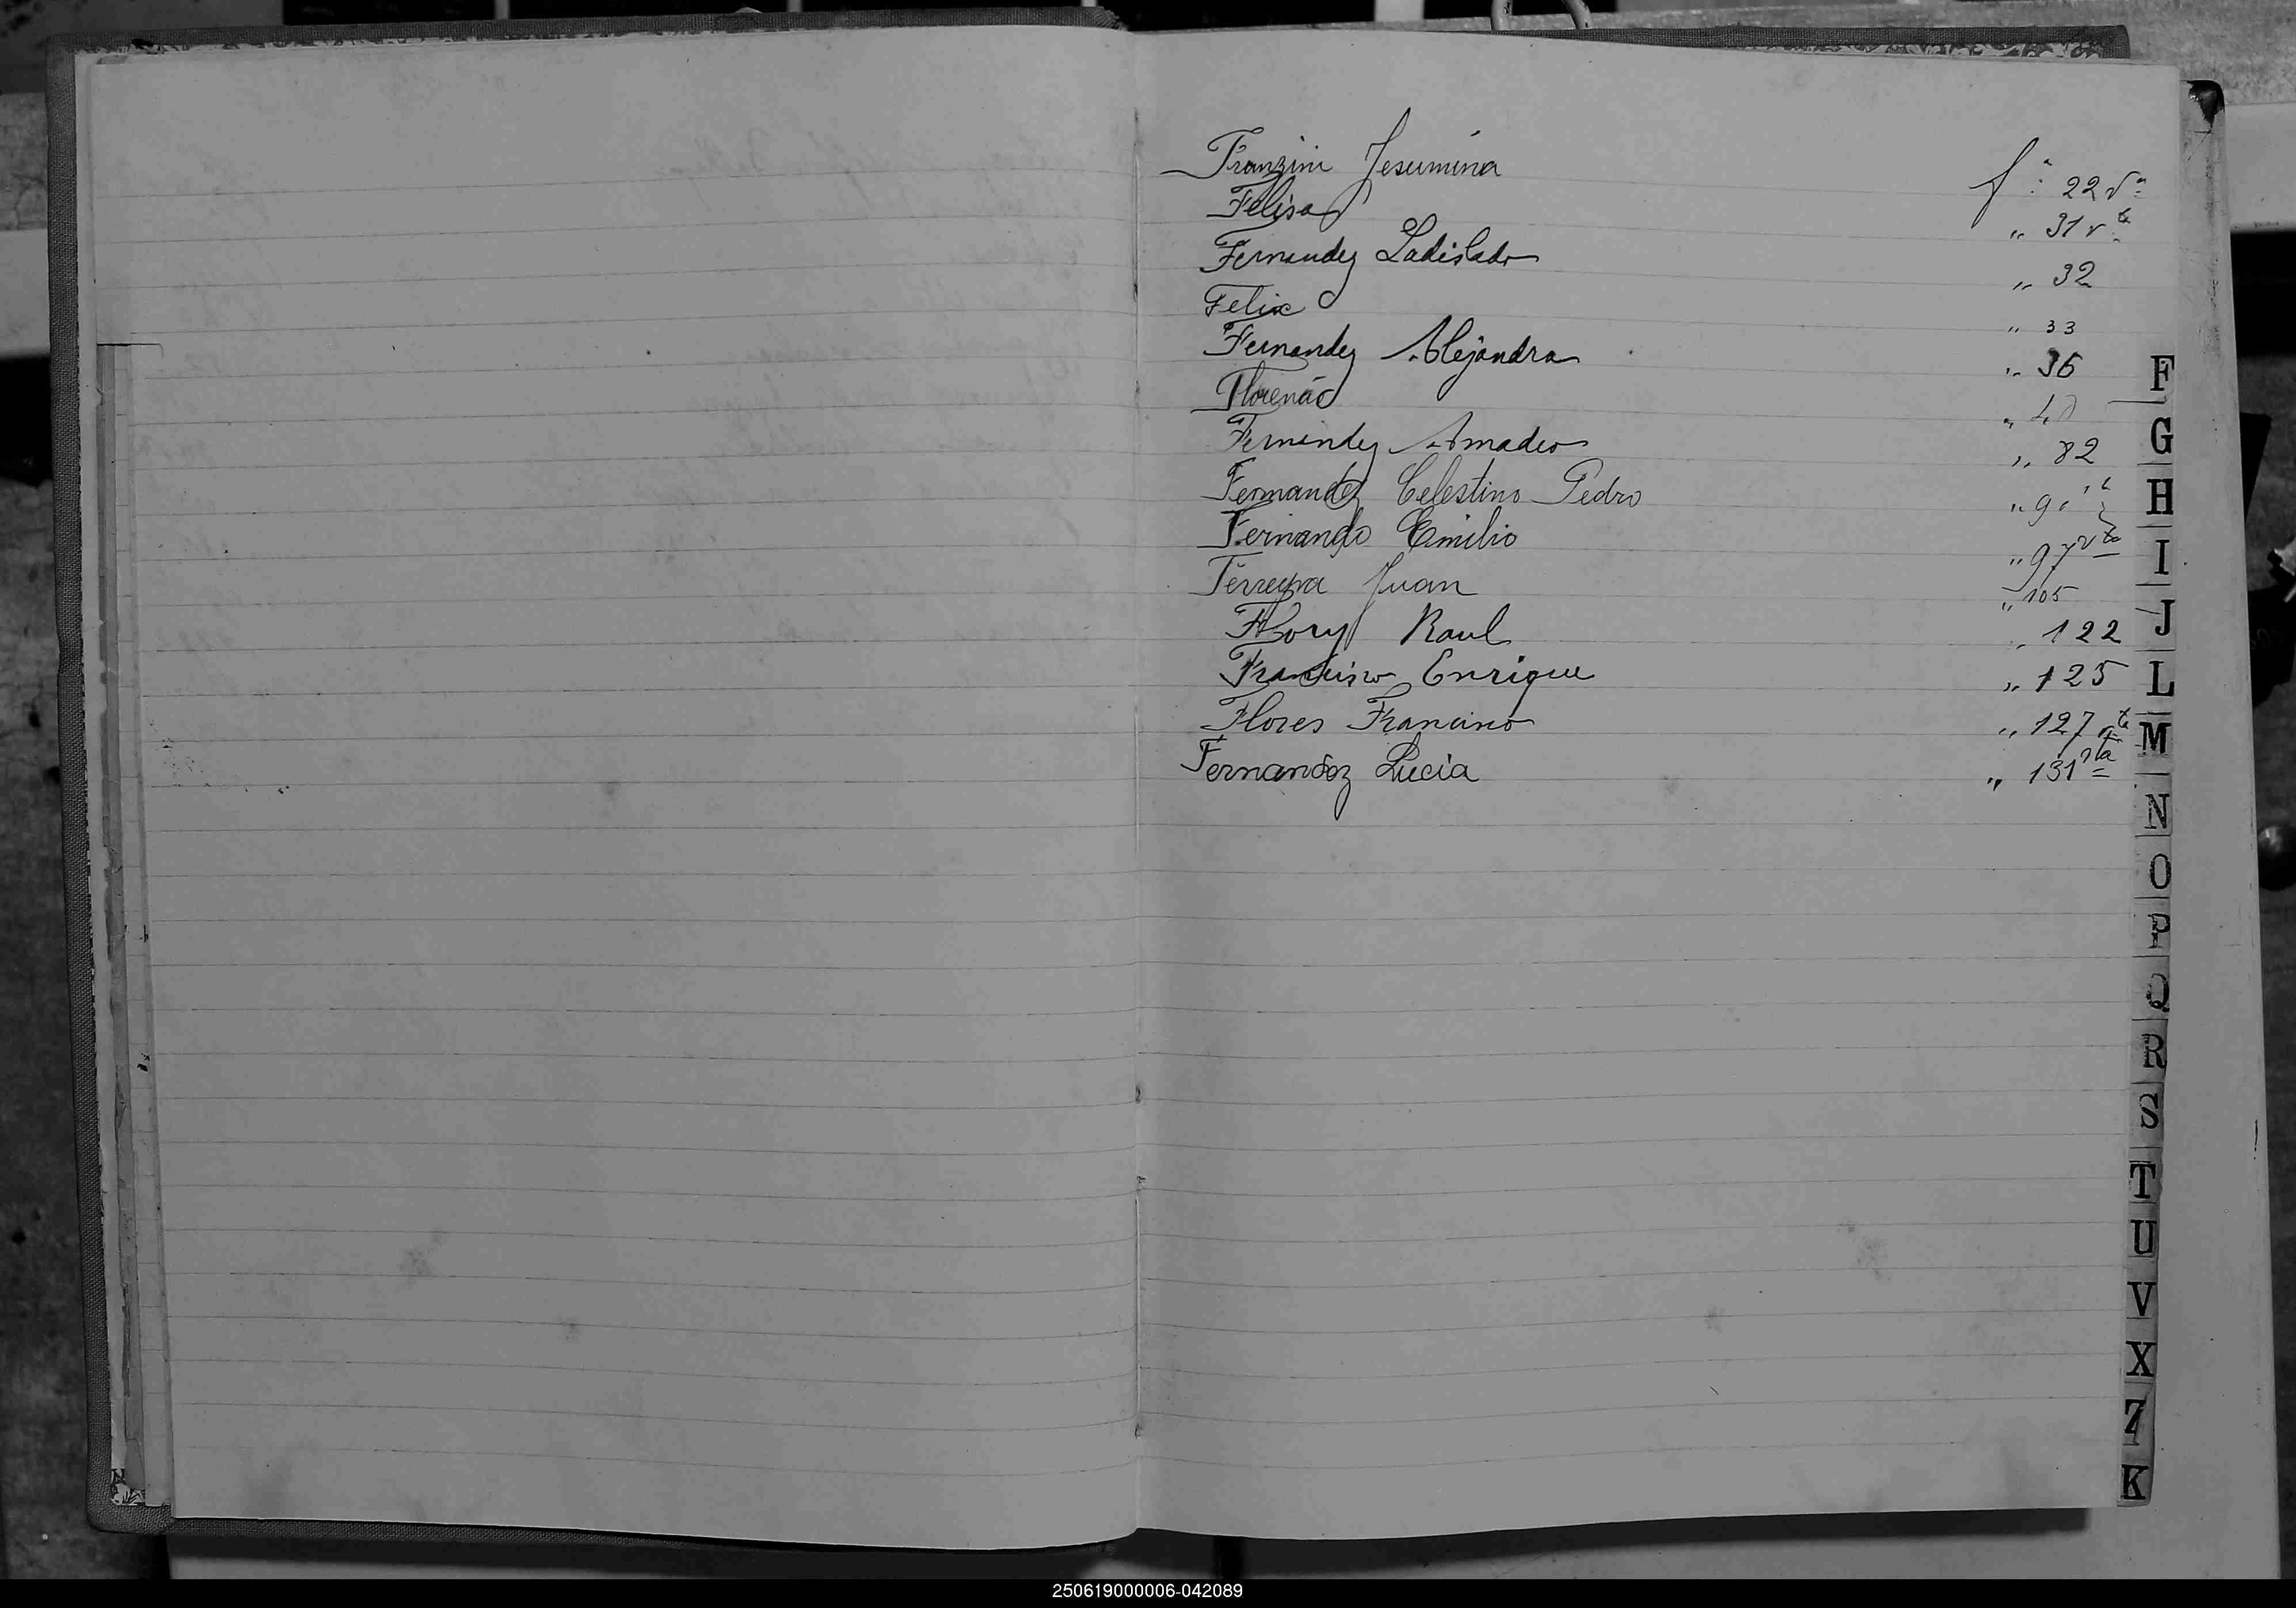 Franzini Jesumina f° 22 v^a
Felisa " 31 v^ta
Fernandez Ladislado " 32
Felix " 33
Fernandez Alejandra " 36
Florencio " 40
Fernandez Amadeo " 82
Fernandez Celestino Pedro
Fernando Emilio " 97 vta
Ferreyra Juan " 105
Flory Raul " 122
Francisco Enrique " 125
Flores Francisco " 127 vta
Fernandez Lucia " 131 vta
F
G
H
I
J
L
M
N
O
P
Q
R
S
T
U
V
X
Z
K
250619000006-042089